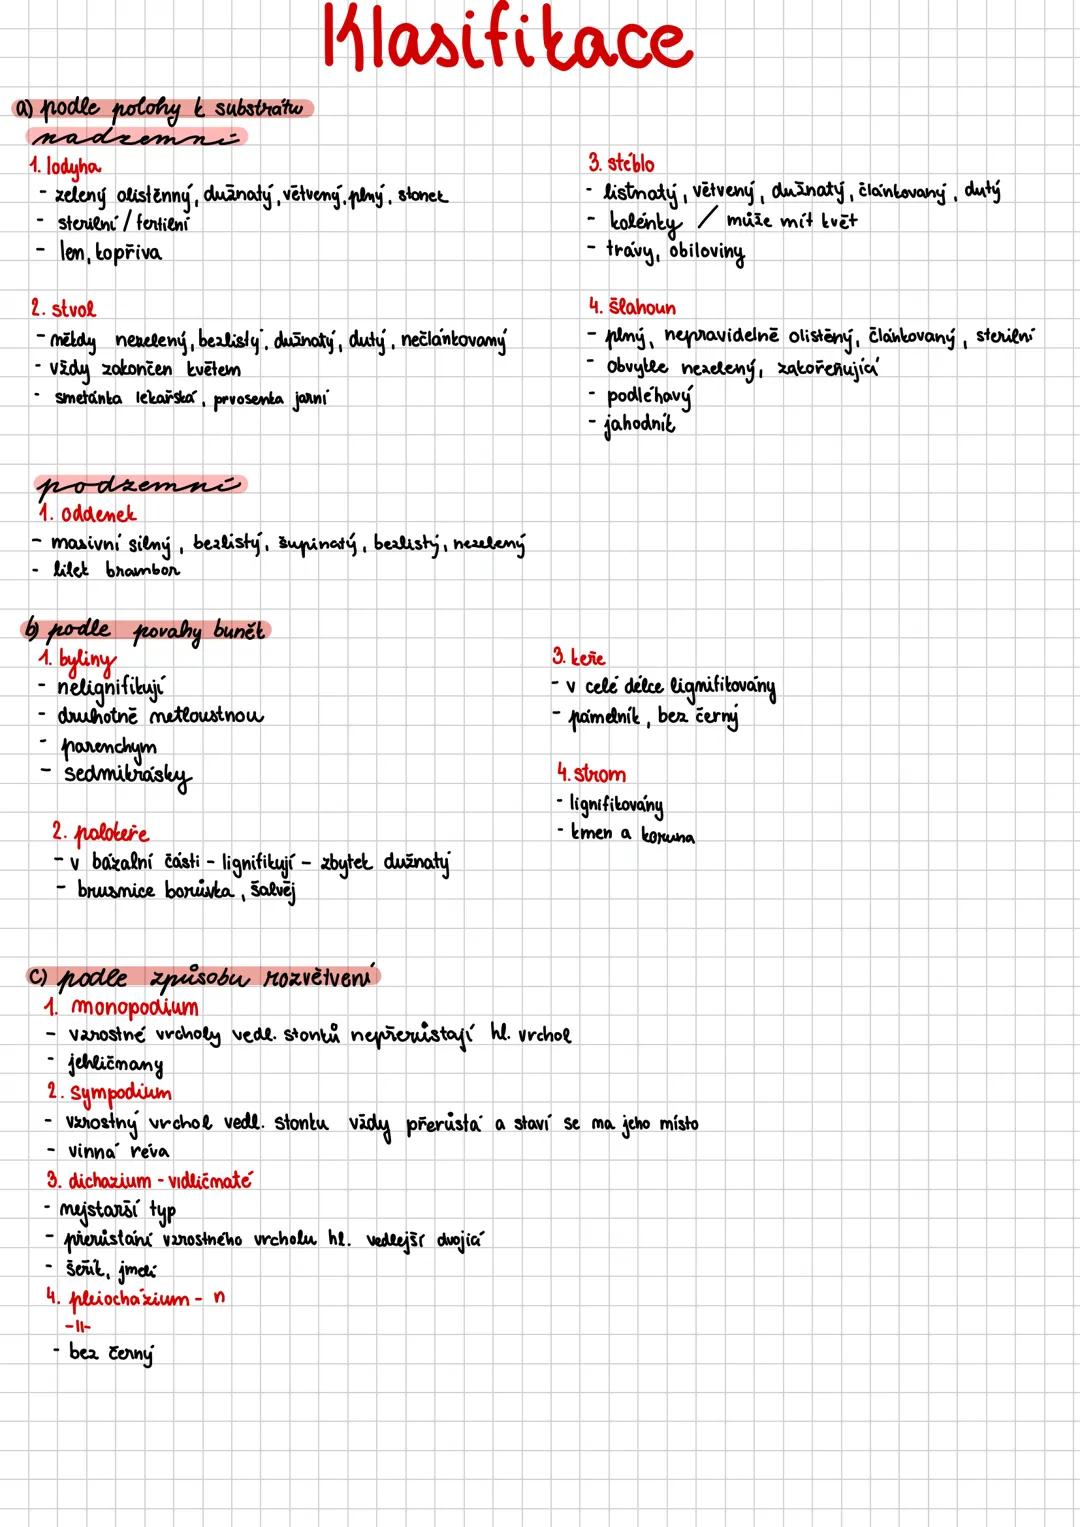 Klasifikace
a) podle polohy k substrátu
nadzemní
1. lodyha
- zelený olistěnný, dužnatý, větvený, plný, stonek
- sterilní / fertilní
- len, kopřiva
2. stvol
- někdy nezelený, bezlistý, dužnatý, dutý, nečlánkovaný
- vždy zakončen květem
- smetánka lékařská, prvosenka jarní
3. stéblo
- listnatý, větvený, dužnatý, článkovaný, dutý
- kolénky / může mít květ
- trávy, obiloviny
4. šlahoun
- plný, nepravidelně olistěný, článkovaný, sterilní
- obvykle nezelený, zakořeňující
- podléhavý
- jahodník
podzemní
1. oddenek
- masivní silný, bezlistý, šupinatý, bezlistý, nezelený
- lilek brambor
b) podle povahy buněk
1. byliny
- nelignifikují
- druhotně netloustnou
- parenchym
- sedmikrásky
2. polokeře
- v bázalní části - lignifikují - zbytek dužnatý
- brusnice borůvka, šalvěj
3. keře
- v celé délce lignifikovány
- pámelník, bez černý
4. strom
- lignifikovány
- kmen a koruna
c) podle způsobu rozvětvení
1. monopodium
- vzrostné vrcholy vedl. stonků nepřerůstají hl. vrchol
- jehličnany
2. sympodium
- vzrostný vrchol vedl. stonku vždy přerůstá a staví se na jeho místo
- vinná réva
3. dichazium - vidličnaté
- nejstarší typ
- přerůstání vzrostného vrcholu hl. vedlejší dvojicí
- šeřík, jmelí
4. pleiochazium - n
-||-
- bez černý